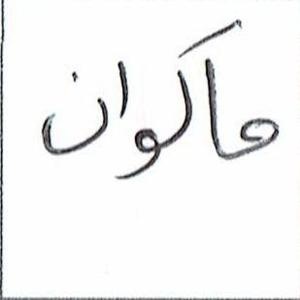 ماکوان